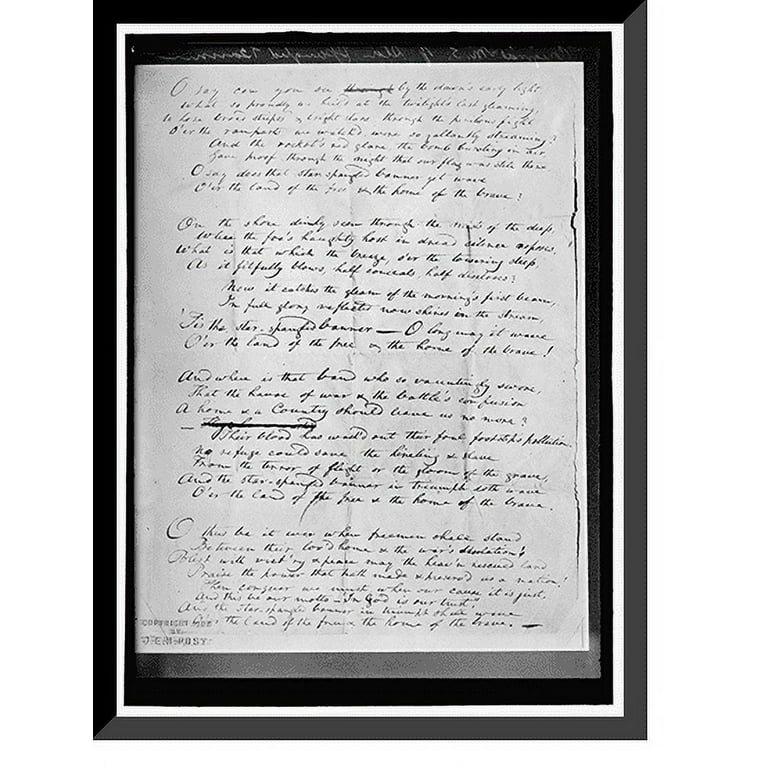 Original M.S. of Star Spangled Banner
O say can you see through by the dawn's early light
What so proudly we hail'd at the twilight's last gleaming,
Whose broad stripes & bright stars through the perilous fight
O'er the ramparts we watch'd, were so gallantly streaming?
And the rocket's red glare, the bomb bursting in air,
Gave proof through the night that our flag was still there
O say does that star-spangled banner yet wave
O'er the land of the free & the home of the brave?
On the shore dimly seen through the mists of the deep,
Where the foe's haughty host in dread silence reposes,
What is that which the breeze, o'er the towering steep,
As it fitfully blows, half conceals, half discloses?
Now it catches the gleam of the morning's first beam,
In full glory reflected now shines in the stream,
'Tis the star-spangled banner — O long may it wave
O'er the land of the free & the home of the brave!
And where is that band who so vauntingly swore,
That the havoc of war & the battle's confusion
A home & a Country should leave us no more?
— Their blood has wash'd out their foul footsteps pollution.
No refuge could save the hireling & slave
From the terror of flight or the gloom of the grave,
And the star-spangled banner in triumph doth wave
O'er the land of the free & the home of the brave.
O thus be it ever when freemen shall stand
Between their lov'd home & the war's desolation!
Blest with vict'ry & peace may the heav'n rescued land
Praise the power that hath made & preserv'd us a nation!
Then conquer we must, when our cause it is just,
And this be our motto - In God is our trust,
And the star-spangled banner in triumph shall wave
O'er the land of the free & the home of the brave. —
COPYRIGHT
BY
POST